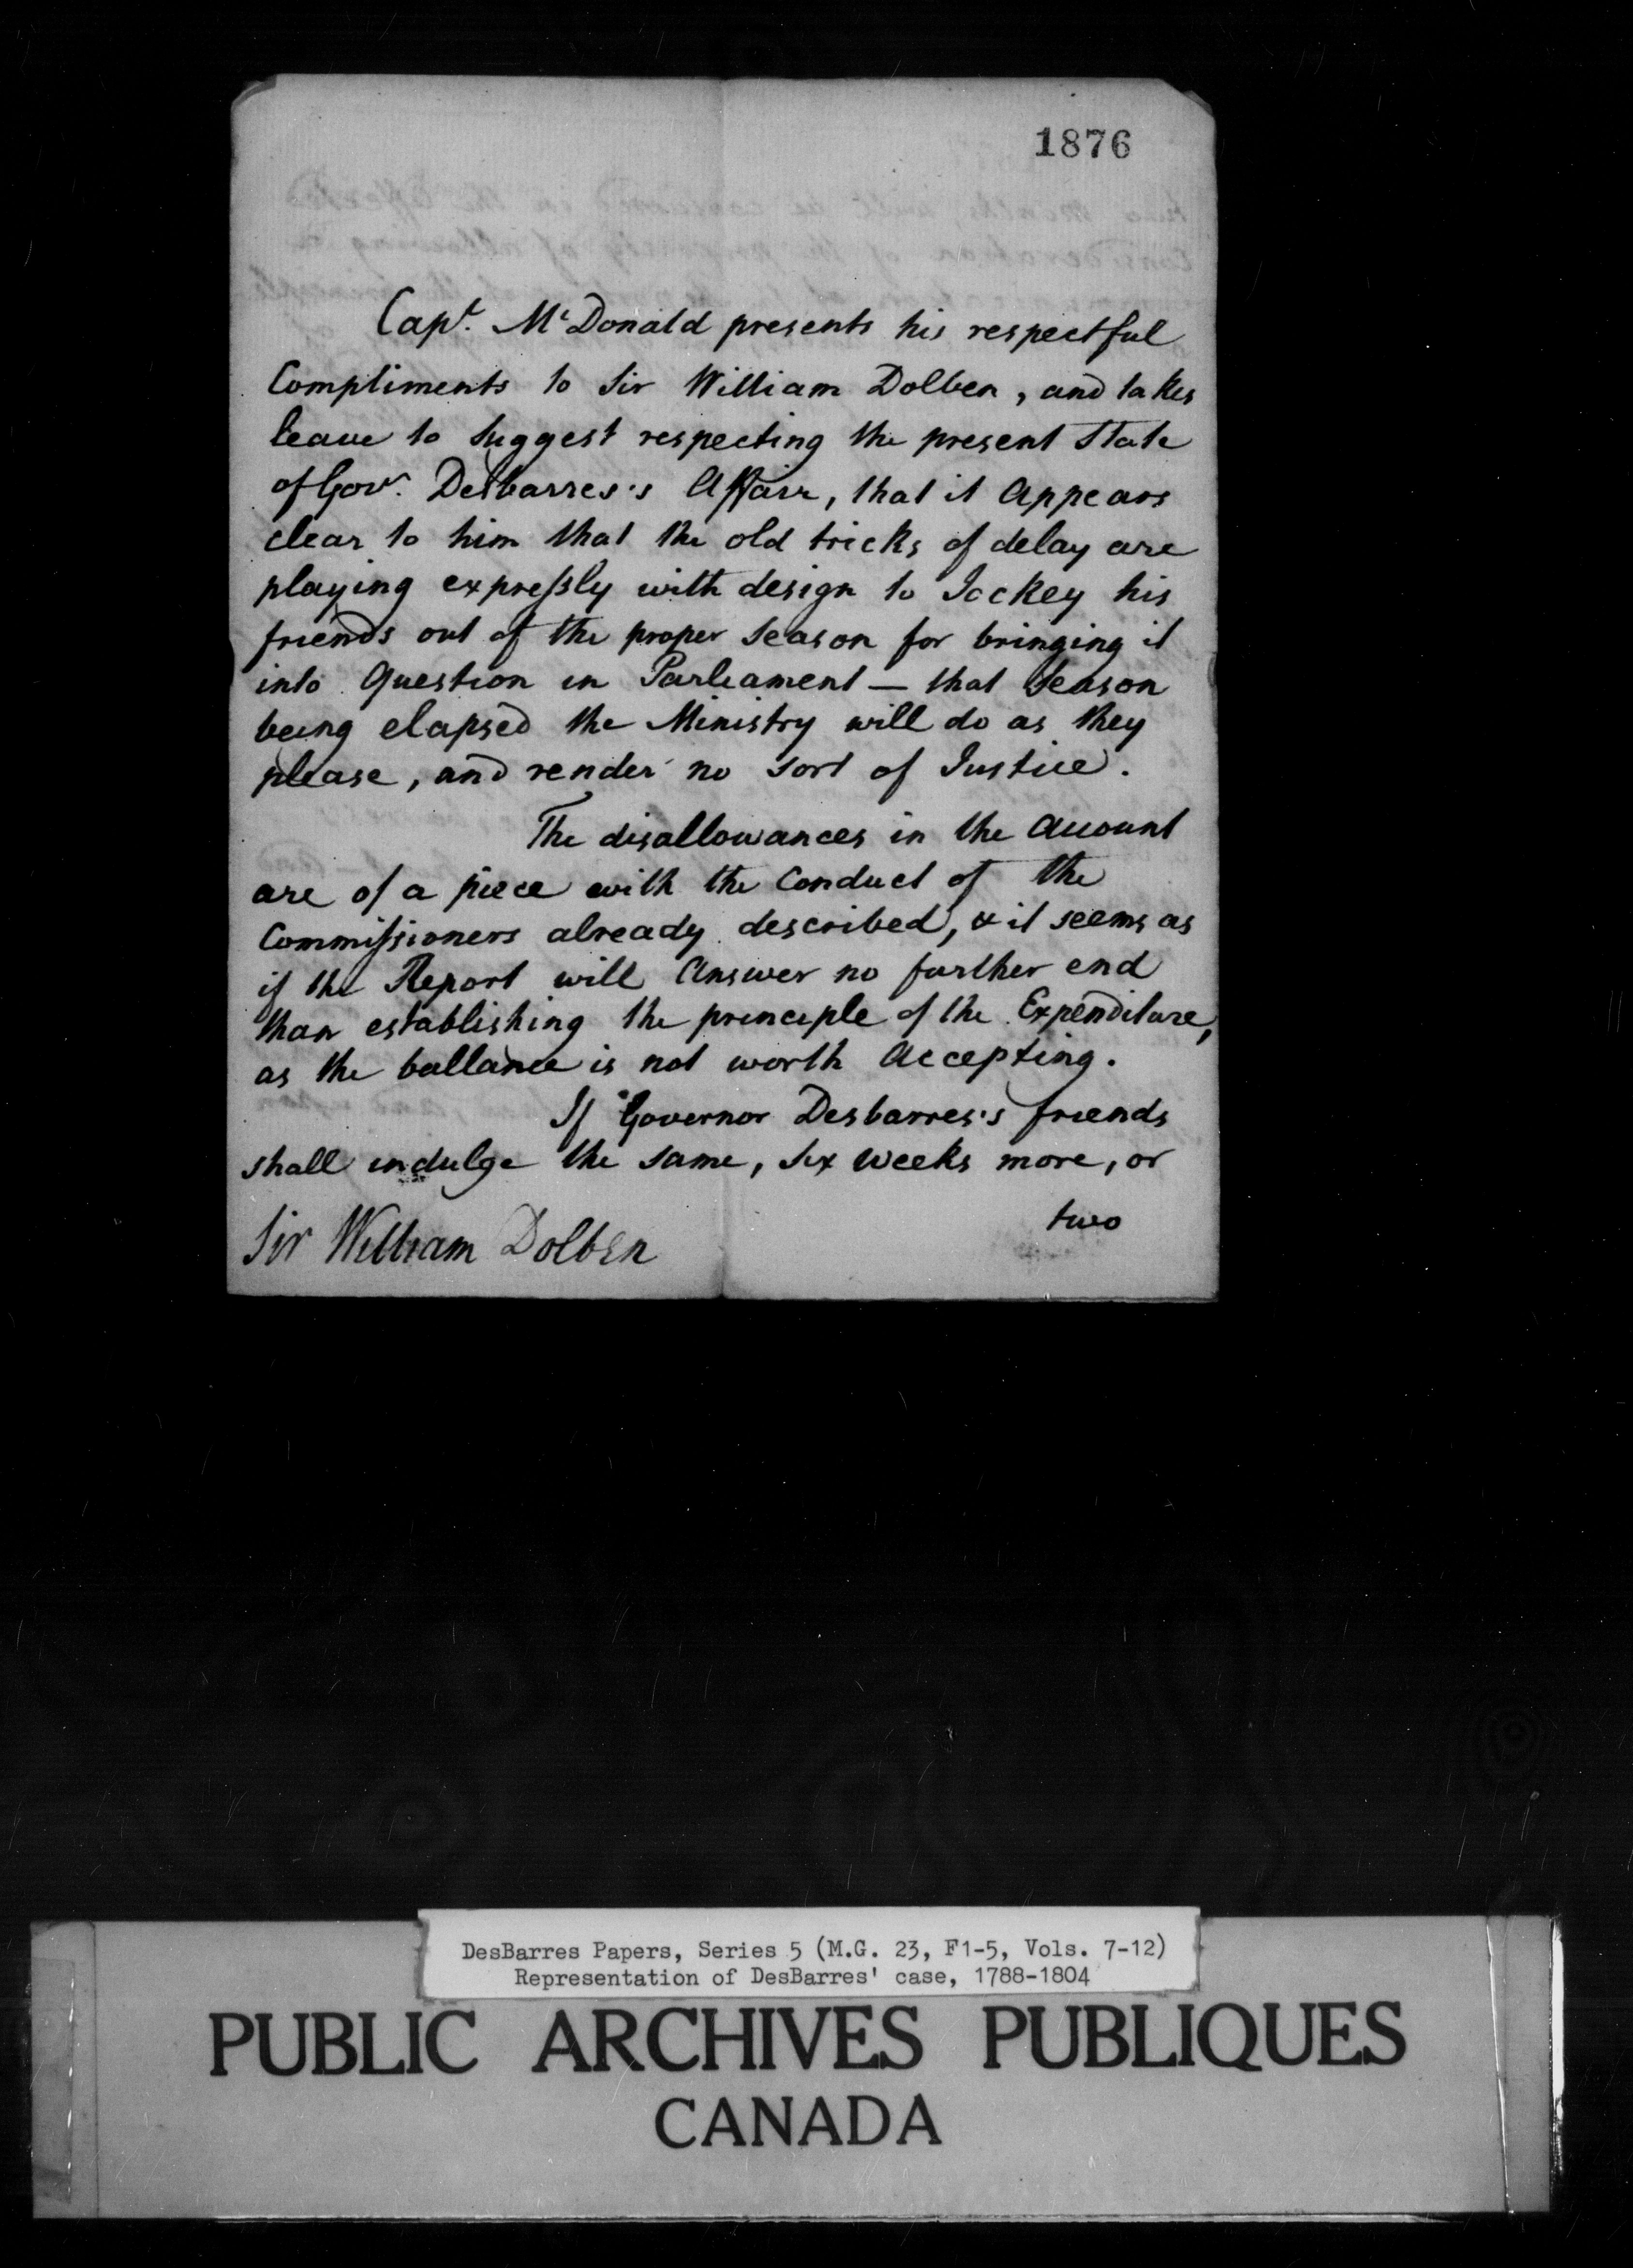 1876
Capt. McDonald presents his respectful
Compliments to Sir William Dolben, and takes
leave to suggest respecting the present State
of Govr. Desbarres's Affair, that it Appears
clear to him that the old tricks of delay are
playing expressly with design to Jockey his
friends out of the proper Season for bringing it
into Question in Parliament — that Season
being elapsed the Ministry will do as they
please, and render no sort of Justice.
The disallowances in the Account
are of a piece with the Conduct of the
Commissioners already described, & it seems as
if the Report will Answer no further end
than establishing the principle of the Expenditure,
as the ballance is not worth Accepting.
If Governor Desbarres's friends
shall indulge the same, six weeks more, or
two
Sir William Dolben
DesBarres Papers, Series 5 (M.G. 23, F1-5, Vols. 7-12)
Representation of DesBarres' case, 1788-1804
PUBLIC ARCHIVES PUBLIQUES
CANADA